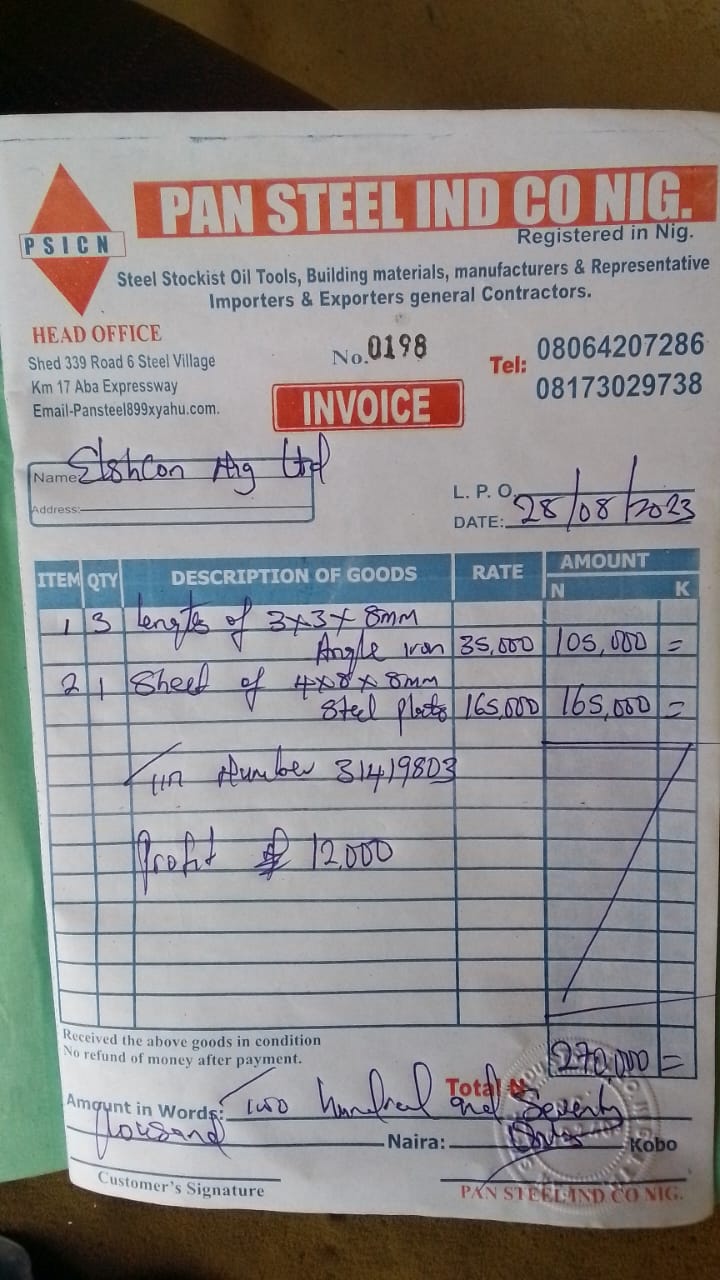 PAN STEEL IND CO NIG.
PSICN
Registered in Nig.
Steel Stockist Oil Tools, Building materials, manufacturers & Representative
Importers & Exporters general Contractors.
HEAD OFFICE
Shed 339 Road 6 Steel Village
Km 17 Aba Expressway
Email-Pansteel899xyahu.com.
No. 0198
INVOICE
Tel: 08064207286
08173029738
Name: Ltd
Address:
L. P. O.
DATE: 28/08/2023
ITEM QTY DESCRIPTION OF GOODS RATE AMOUNT
N K
1 3 lengts of 3x3x8mm
Angle iron 35,000 105,000 =
2 1 Sheet of 4x8x8mm
Steel plate 165,000 165,000 =
Tin Number 31419803
Profit 12,000
Received the above goods in condition
No refund of money after payment.
Total N 270,000 =
Amount in Words: Two hundred and Seventy
thousand Naira: Only Kobo
Customer's Signature
PAN STEEL IND CO NIG.